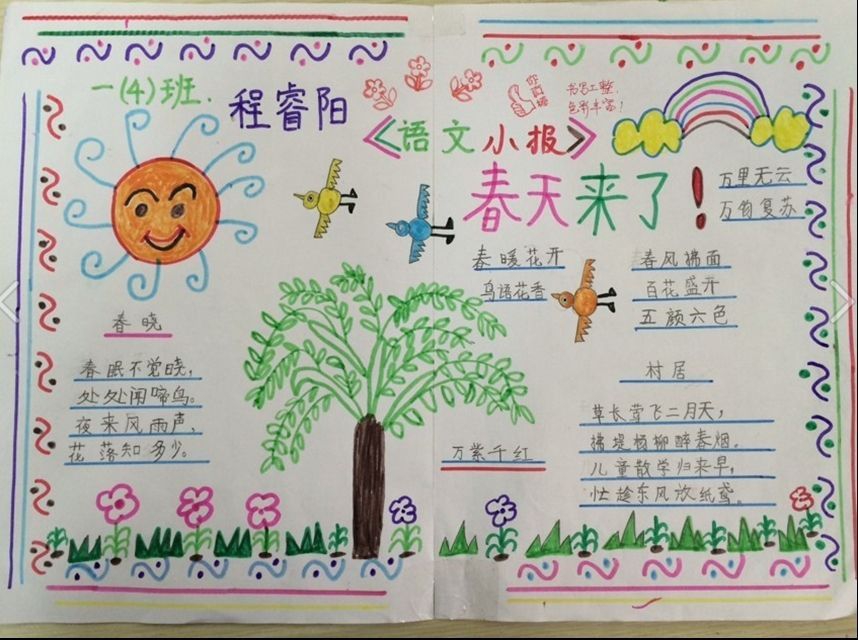 一(4)班.
程睿阳
你真棒
书写工整,
色彩丰富!
《语文小报》
春天来了!
万里无云
万钧复苏
春暖花开
鸟语花香
春风拂面
百花盛开
五颜六色
春晓
春眠不觉晓,
处处闻啼鸟。
夜来风雨声,
花落知多少。
万紫千红
村居
草长莺飞二月天,
拂堤杨柳醉春烟。
儿童散学归来早,
忙趁东风放纸鸢。